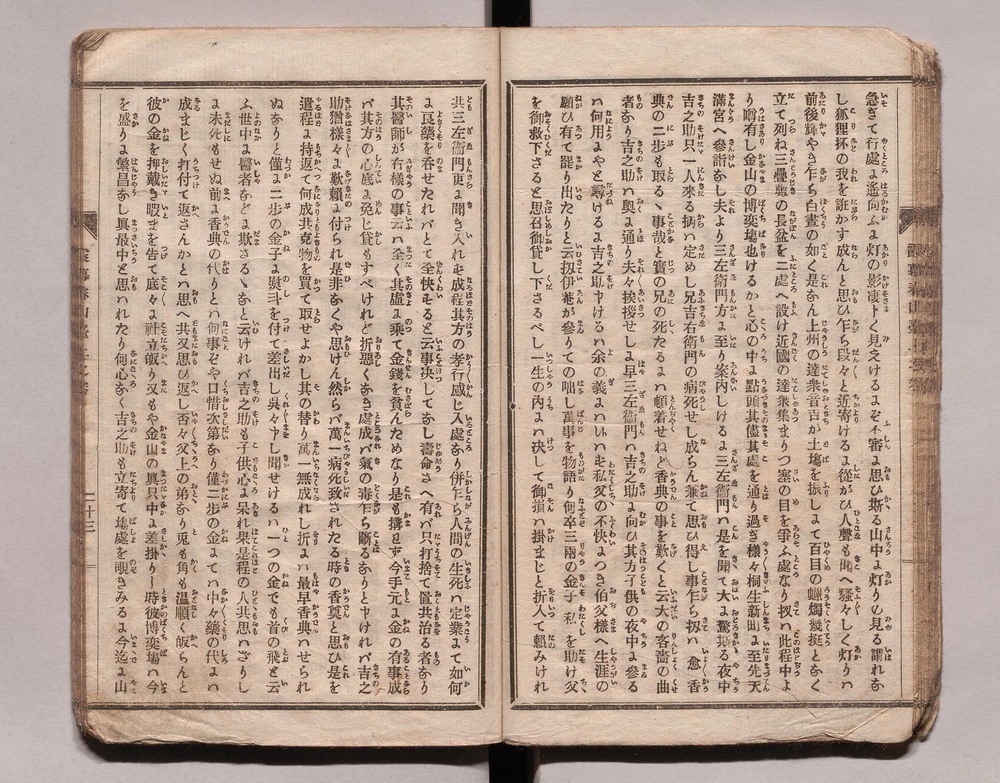 急ぎて行處に遙向ふに灯の影凄く見えけるにぞ不審に思ひ斯る山中に灯りの見る謂れなし
し狐狸抔の我を誑かす成んと思ひ乍ら段々と近寄けるに從がひ人聲も聞へ騒々しく灯りハ
前後輝やき乍ら白晝の如く是なん上州の達衆音吉が土塲を振しまて百目の蠟燭幾挺となく
立て列ね三疊敷の長盆を二處へ設け近國の達衆集まりつ塞の目を爭ふ處なり扨ハ此程中よ
り噂有し金山の博奕塲也けるかと心の中に點頭其儘其處を通り過ぎ樣々桐生新田に至先天
滿宮へ參詣し夫より三左衞門方に至り案内しけるに三左衞門ハ是を聞て大に驚き斯る夜中
吉之助只一人來るハ病ハ定めし兄吉右衞門の病死せし成らん兼て思ひ得し事乍ら扨ハ愈香
典の二歩も取るゝ事哉と實の兄の死たるハ頓着せねど香典の事を歎くと云大の客嗇の曲
者なり吉之助ハ奧に通り夫々挨拶せしに早三左衞門ハ吉之助に向ひ其方子供の夜中に參る
ハ何用よやと尋けるに吉之助申けるハ余の義にハいハも私父の不快につき伯父樣へ生涯の
願ひ有て罷り出たりと云扨伊菴が參りての咄し萬事を物語り何卒三兩の金子私を助け父
を御救下さると思召御貸し下さるべし一生の内にハ决して御損ハ掛まじと折入て賴みけれ
共三左衞門更に聞き入れも成程其方の孝行感じ入處なり併乍ら人間の生死ハ定業まて如何
に良藥を呑せたれバとて全快もると云事决してなし壽命さへ有れバ只打捨て置共治る者なり
其醫師が右樣の事云ハ全く其虛に乘て金錢を貪んためなり是も搆はず今手元に金の有事成
バ其方の心底に免じ貸もすべけれど折悪くなき處成バ氣の毒乍ら斷るなりと申けれバ吉之
助猶樣々に歎賴に付られ是非なくや思けん然らバ萬一病死致されたる時の香奠と思ひ是を
遣程に持返て何成共克物を買て取せよかし其の替り萬一無成れし折にハ最早香典ハせられ
ぬなりと僅に二歩の金子に熨斗を付て差出し吳々申し聞せけるハ一つの金でも首の飛と云
ふ世中に醫者などに欺さるゝなと云けれバ吉之助も子供心に呆れ果是程の人共思ハざりし
に未死もせぬ前に香典の代りとハ何事ぞや口惜次第なり僅二歩の金まてハ中々藥の代にハ
成まじく打付て返さんかとハ思へ共又思ひ返し否々父上の弟なり兎も角も温順く皈らんと
彼の金を押戴き暇まを告て底々に社立皈り又もや金山の奧只中に差掛りし時彼博奕塲ハ今
を盛りに繁昌なし眞最中と思ハれたり何心なく吉之助も立寄て塲處を覗きみるに今迄に山
二十三